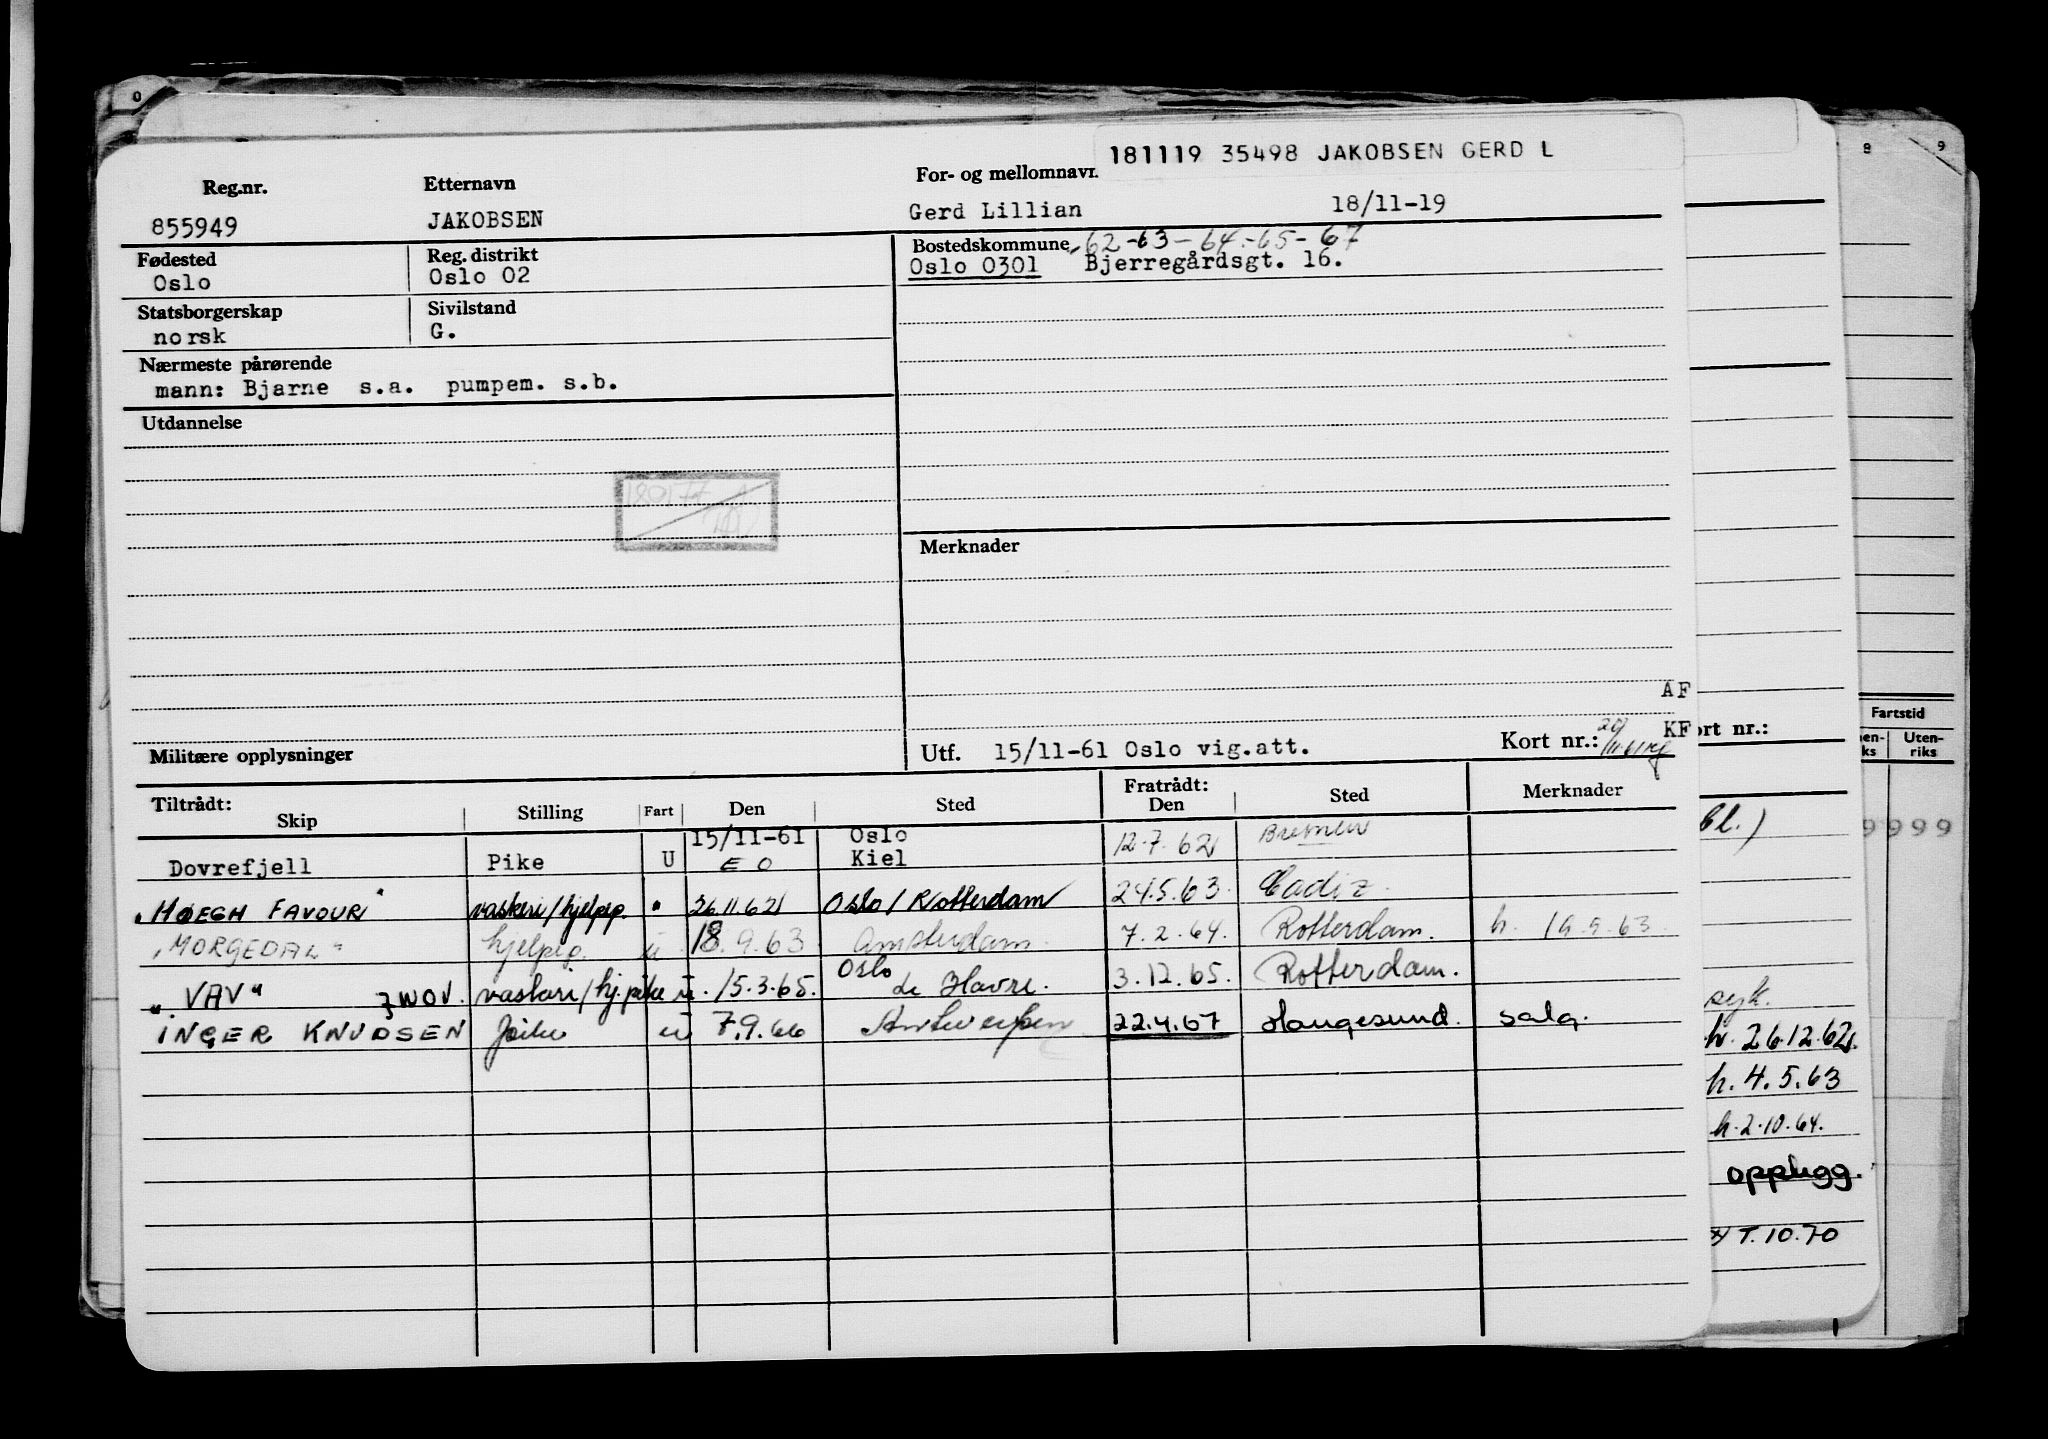 181119 35498 JAKOBSEN GERD L
Reg.nr. Etternavn For- og mellomnavn
855949 JAKOBSEN Gerd Lillian 18/11-19
Fødested Reg. distrikt Bostedskommune 62-63-64-65-67
Oslo Oslo 02 Oslo 0301 Bjerregårdsgt. 16.
Statsborgerskap Sivilstand
norsk G.
Nærmeste pårørende
mann: Bjarne s.a. pumpem. s.b.
Utdannelse
180177
Merknader
AF
Militære opplysninger Utf. 15/11-61 Oslo vig.att. Kort nr.: KF ort nr.:
Fartstid
Uten-
riks
Tiltrådt: Fratrådt:
Skip Stilling Fart Den Sted Den Sted Merknader
15/11-61 Oslo
Dovrefjell Pike U E O Kiel 12.7.62 Bremen
"HØEGH FAVOUR" vaskeri/hjelpep. " 26.11.62 Oslo / Rotterdam 24.5.63. Cadiz.
"MORGEDAL" hjelpep. u 18.9.63 Amsterdam. 7.2.64. Rotterdam. h. 19.9.63.
Oslo
"VAV" ZWOV. vaskeri/hj.pike u. 15.3.65. Le Havre. 3.12.65. Rotterdam.
INGER KNUDSEN Pike u 7.9.66 Antwerpen 22.4.67 Haugesund. salg.
bl.)
9 9 9 9
sejk.
h. 26.12.62.
h. 4.5.63
h. 2.10.64.
opphugg.
T.10.70